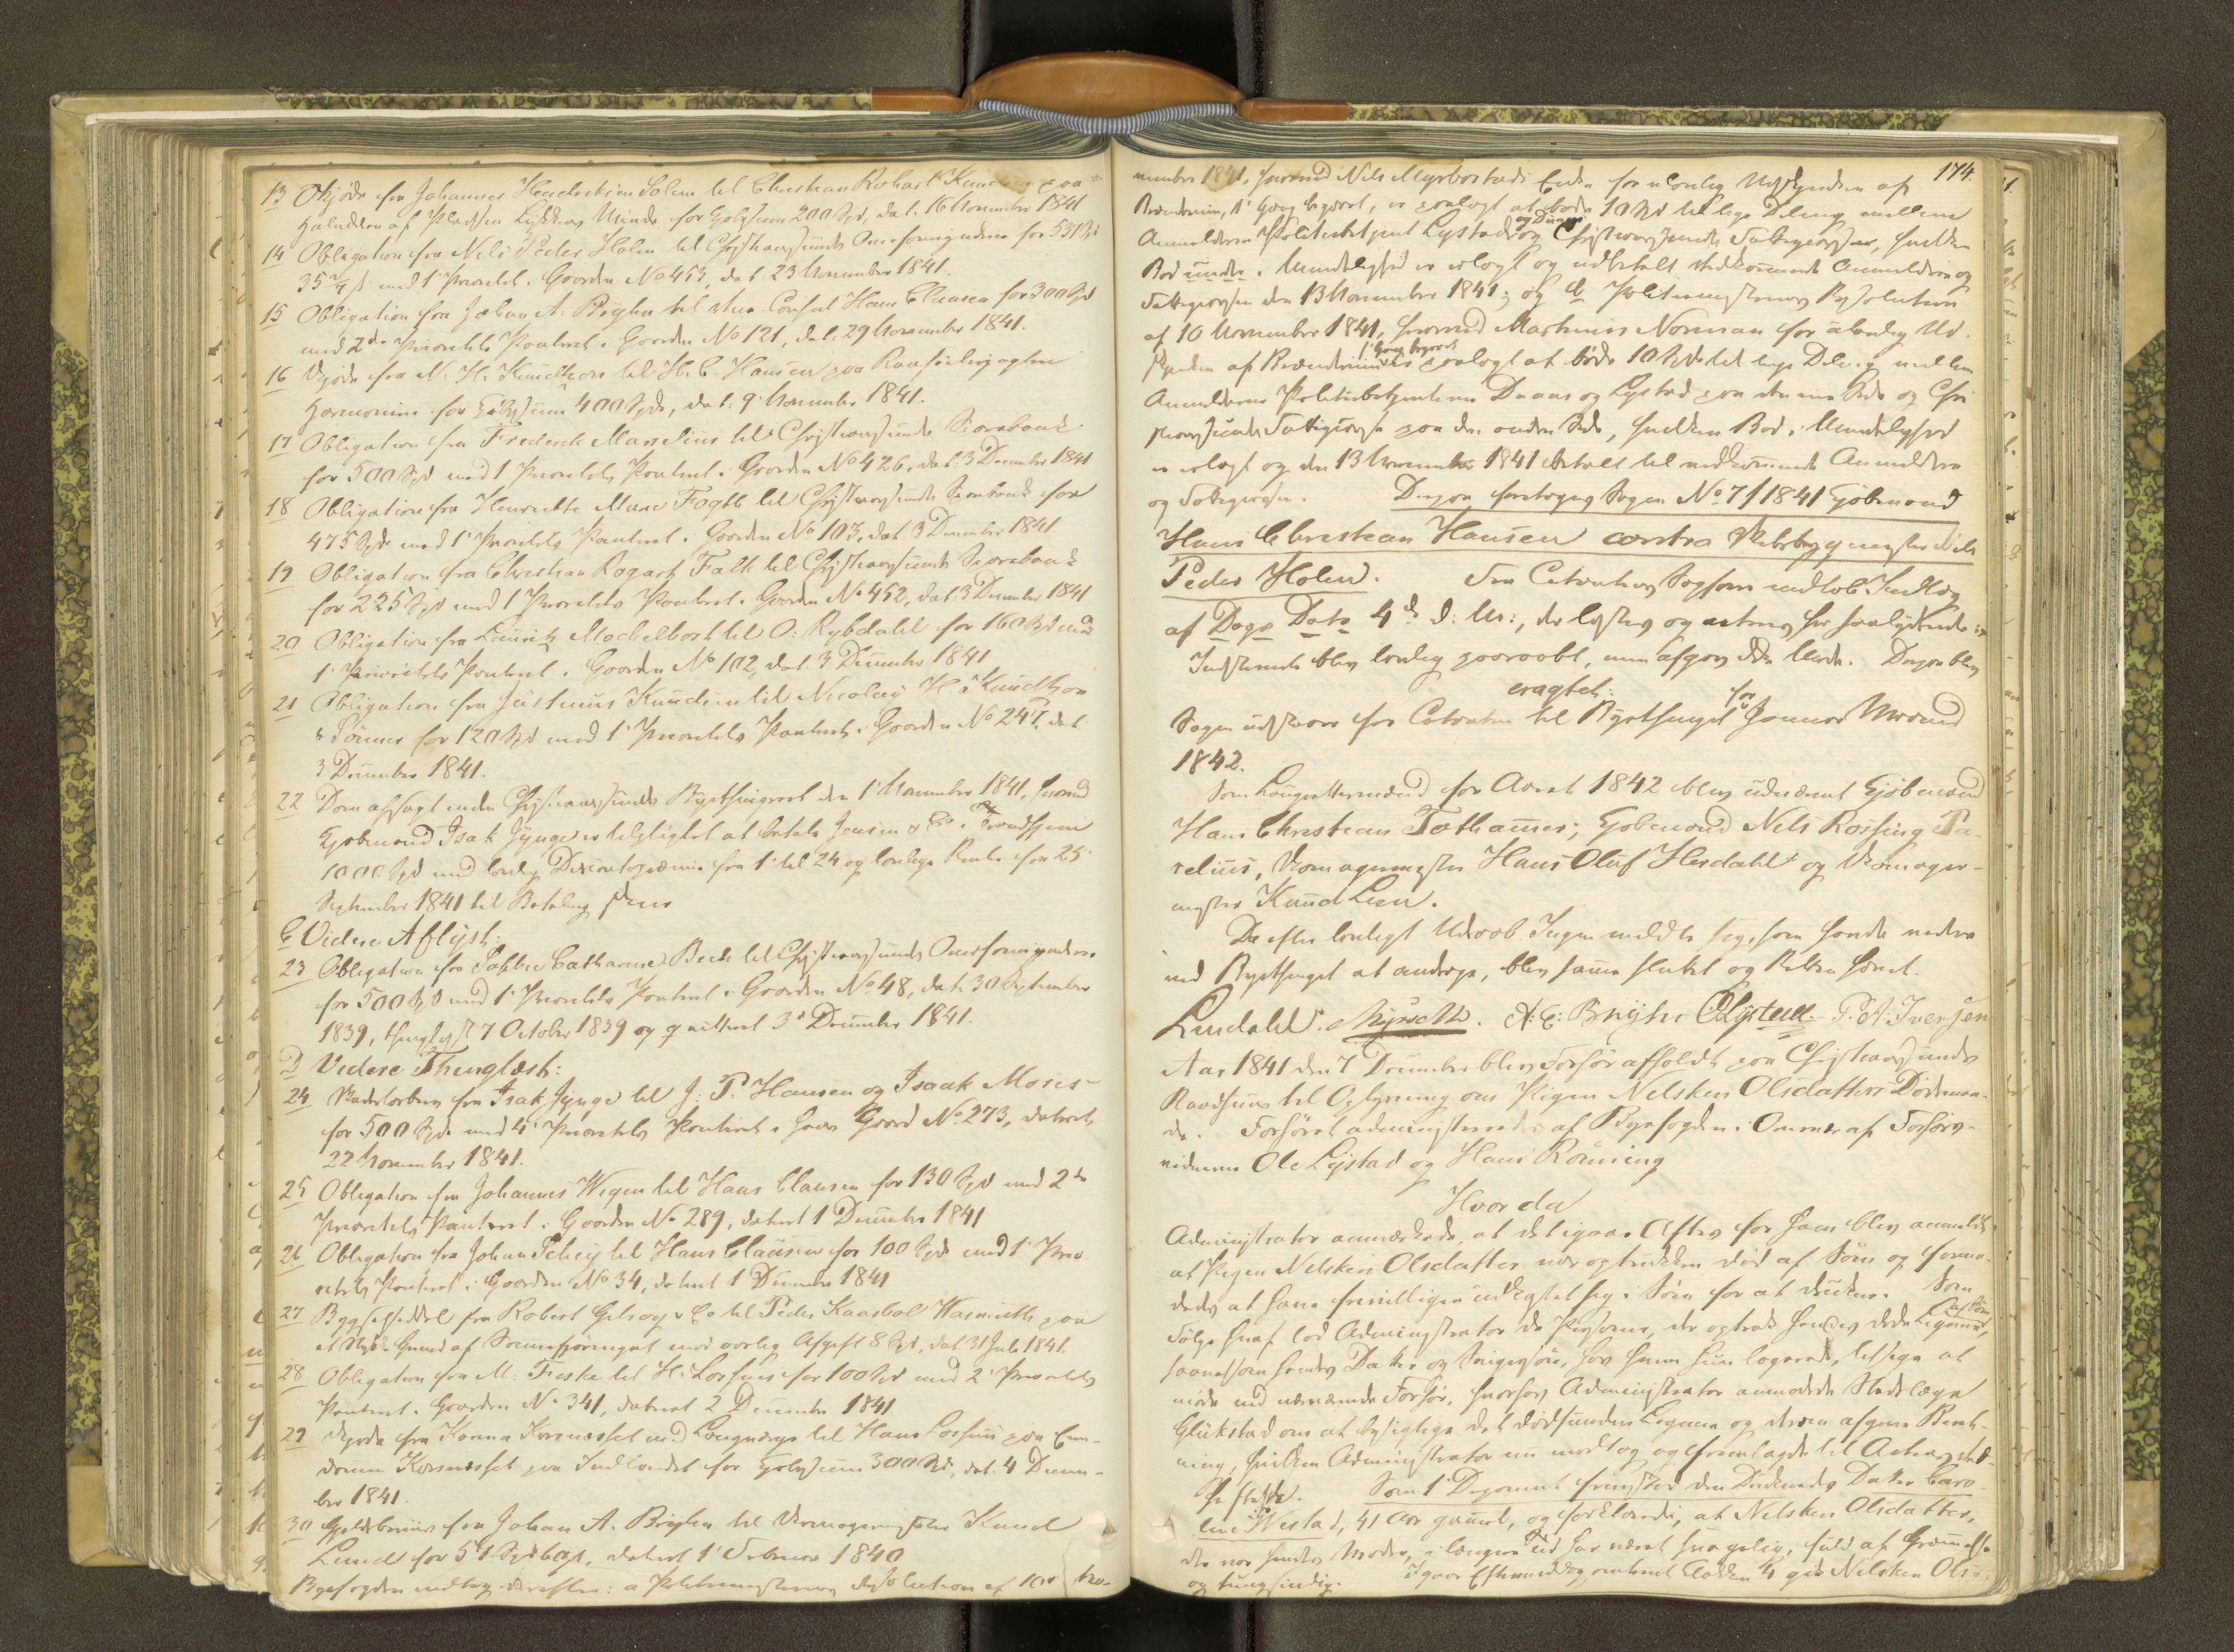 13 Skjøde fra Johannes Hendricksen Solem til Christian Rokart Knudtzon paa
Halvdelen af Pladsen Lykkens Minde for Kjøbsum 200 Spd, dat. 16 November 1841
14 Obligation fra Nils Peder Holm til Christianssunds Overformynderie for 551 Spd
35 ß med 1' Prioritet i Gaarden No 453, dat. 23 November 1841.
15 Obligation fra Johan A. Bryhn til Consul Hans Clausen for 300 Spd
med 2den Prioritets Panteret i Gaarden No 121, dat. 29 November 1841.
16 Skjøde fra N. H. Knudtzon til H. C. Hansen paa
Harmonien for Kjøbsum 400 Spd, dat. 9' November 1841.
17 Obligation fra Frederik Marselius til Christianssunds Sparebank
for 500 Spd med 1 Prioritets Panteret i Gaarden No 426, dat. 3 December 1841
18 Obligation fra Henriette Marie Fogth til Christianssunds Sparebank for
475 Spd med 1' Prioritets Panteret i Gaarden No 103, dat. 3 December 1841
19 Obligation fra Christian Bogart Falk til Christianssunds Sparebank
for 225 Spd med 1 Prioritets Panteret i Gaarden No 452, dat. 3 December 1841
20 Obligation fra Lauritz Mochelbost til O: Rybdahl for 160 Spd med
1' Prioritets Panteret i Gaarden No 102, dat. 3 December 1841
21 Obligation fra Justinus Knudsen til Nicolay H: Knudtzon
& Sønner for 120 Spd med 1' Prioritets Panteret i Gaarden No 247, dat.
3 December 1841.
22 Dom afsagt inden Christianssunds Byethingsret den 1' November 1841, hvorved
Kjøbmand Isak Jynge er tilpligtet at betale Jensen & Co i Trondhjem
1000 Spd med lovlig fra 1' til 24 og lovlige Renter fra 25'
September 1841 til Betaling skeer
C Videre Aflyst:
23 Obligation fra Catharine Beck til Christianssunds Overformynderie
for 500 Spd med 1' Prioritets Panteret i Gaarden No 48, dat. 30 September
1839, thinglyst 7 October 1839 og qvitteret 3' December 1841.
D Videre Thinglæst:
24 fra Isak Jynge til J. P. Hansen og Isaak Moses
for 500 Spd. med 4' Prioritets Panteret i hans Gaard No 273, dateret
22 November 1841.
25 Obligation fra Johannes Wegen til Hans Clausen for 130 Spd med 2den
Prioritets Panteret i Gaarden No 289, dateret 1 December 1841
26 Obligation fra Johan Schey til Hans Clausen for 100 Spd med 1' Prio
ritets Panteret i Gaarden No 34, dateret 1 December 1841
27 Bygselseddel fra Robert Gelroy & Co til Peder Kaasbøl Wasmuth paa
et Stykke Grund af mod aarlig Afgift 8 Spd, dat. 31 Juli 1841.
28 Obligation fra M: Fiske til H: Lossius for 100 Spd med 2' Prioritets
Panteret i Gaarden No 341, dateret 2 December 1841
29 Skjøde fra Karen Korsnæsset med Laugværge til Hans Lossius paa Eien-
dommen Korsnæsset paa Indlandet for Kjøbsum 300 Spd, dat. 4 Decem-
ber 1841.
30 Gjeldsbrev fra Johan A. Bryhn til Skomagermester Knud
Lund for 51 Spd, dateret 1' Februar 1840
Byefogden derefter: a Politimesterens Resolution af 10de No-
174.
vember 1841, hvorved Nils Myrbostads Enke for ulovlig Udskjænken af
Brændeviin, 1' Gang begaaet, er paalagt at bøde 10 Spd til lige Deling mellem
Anmelderne Politiebetjent Lystad og Daaas og Christianssunds Fattigcasse, hvilken
Bod i Mindelighed er erlagt og udbetalt vedkommende Anmeldere og
Fattigcassen den 13 November 1841; og b Politimesterens Resolution
af 10 November 1841, hvorved Martinus Norman for ulovlig Ud-
skjænken af Brændeviin 1' Gang begaaet er paalagt at bøde 10 Spd til lige Deling mellem
Anmelderne Politiebetjentene Daaas og Lystad paa den ene Side og Chri
stianssunds Fattigcasse paa den anden Side, hvilken Bod i Mindelighed
er erlagt og den 13 November 1841 betalt til vedkommende Anmeldere
og Fattigcassen. Derpaa foretoges Sagen No 7/1841 Kjøbmand
Hans Christian Hansen contra Skibsbyggmester Nils
Peder Holm. For Citanten Sagfører Indlæg
af Dags Dato 4de d: M:, der lystes og acteres her saalydende:
Indstevnte blev lovlig paaraabt, men afgav ikke Møde. Derpaa blev
eragtet:
Sagen udsættes for Citanten til Byethinget for Januar Maaned
1842.
Som Laugrettesmænd for Aaret 1842 blev udnævnt Kjøbmand
Hans Christian Tothammer; Kjøbmand Nils Rossing Pa-
relius, Skomagermester Hans Oluf Hesdahl og Skomager-
mester Knud Lien.
Da efter lovligt Udraab Ingen meldte sig, som havde videre
ved Byethinget at andrage, blev samme sluttet og Retten hævet.
Lindahl. A: C: Bryhn OLystad P. A. Iversen
Aar 1841 den 7 December blev Forhør afholdt paa Christianssunds
Raadhuus til Oplysning om Pigen Nelsken Olsdatters Dødsmaa-
de. Forhøret administreredes af Byefogden i Overvær af Forhørs-
vidnerne Ole Lystad og Hans Rønning
Hvor da
Administrator anmærkede, at det igaar Aftes for ham blev anmeldt
at Pigen Nelsken Olsdatter var optrukken død af Søen og formo-
dedes at have frivilligen udkastet sig i Søen for at druknes. Som
Følge heraf lod Administrator de Personer, der optrak hendes døde Legeme af Søen,
saavelsom hendes Datter og Svigersøn, hos hvem hun logerede, tilsige at
møde ved nærværende Forhør, hvorhos Administrator anmodede Stadslæge
Glükstad om at besigtige det dødfundne Legeme og derom afgive Beret-
ning, hvilken Administrator nu modtog og fremlagde til Acten
Som 1' Deponent fremstod den Druknedes Datter Caro-
line Nestad, 41 Aar gammel, og forklarede, at Nelsken Olsdatter,
der var hendes Moder, i længere Tid har været svagelig, fuld af Græmmelse
og tungsindig. Igaar Eftermiddag, omtrent Klokken 4 gik Nelsken Ols-